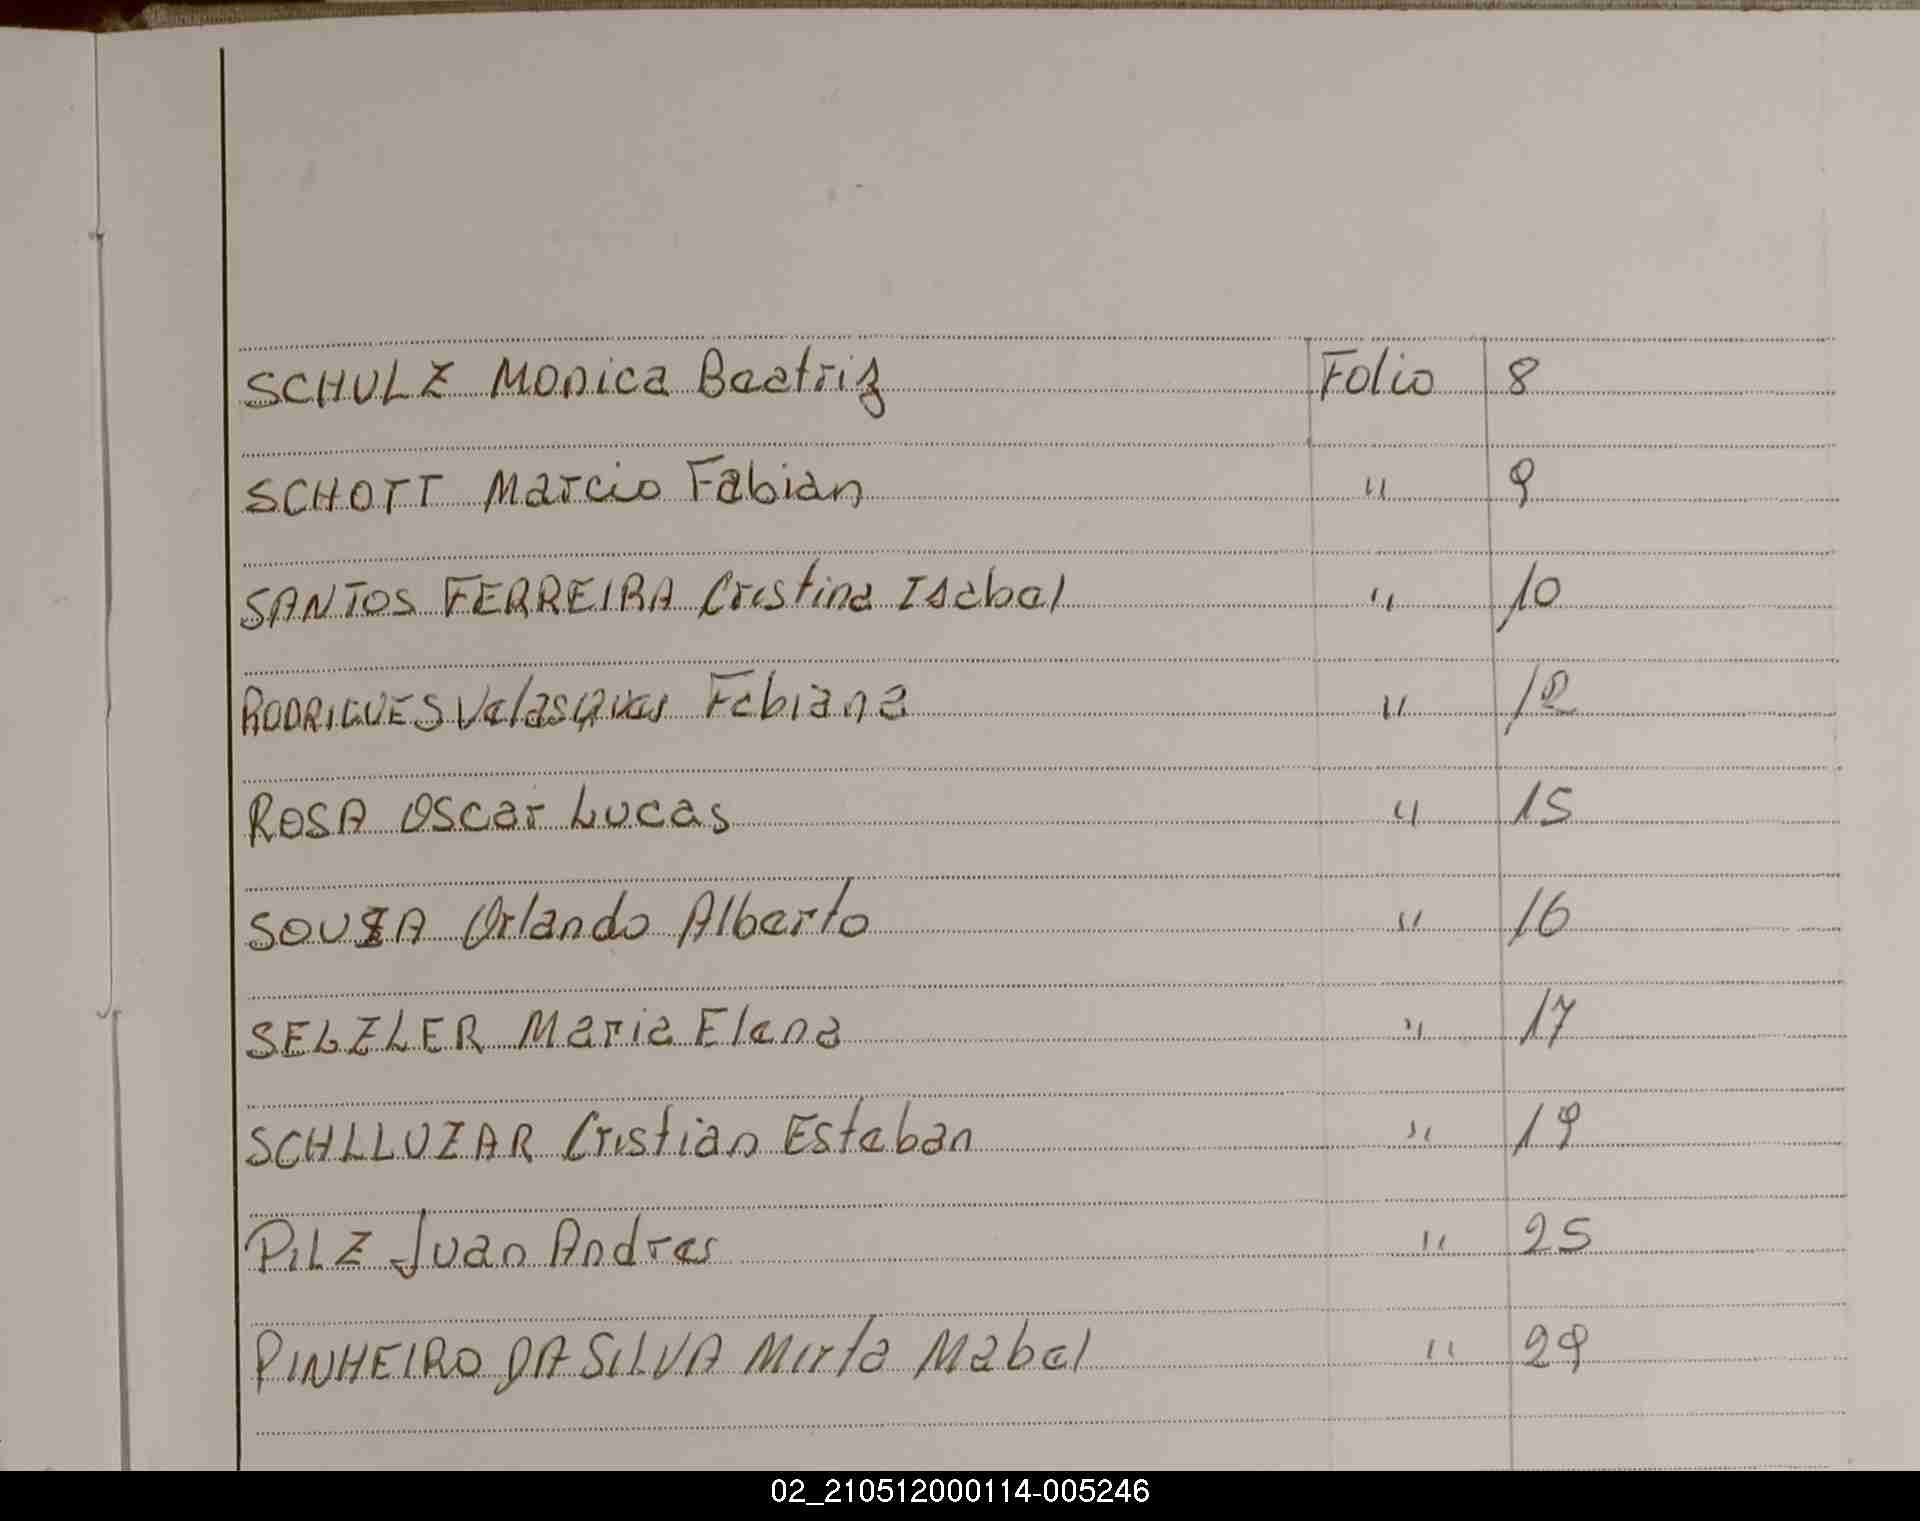 SCHULZ Monica Beatriz Folio 8
SCHOTT Marcio Fabian " 9
SANTOS FERREIRA Cristina Isabel " 10
RODRIGUES Velasques Fabiana " 12
ROSA Oscar Lucas " 15
SOUZA Orlando Alberto " 16
SELZLER Maria Elena " 17
SCHLLUZAR Cristian Esteban " 19
PILZ Juan Andres " 25
PINHEIRO DA SILVA Mirta Mabel " 29
02_210512000114-005246